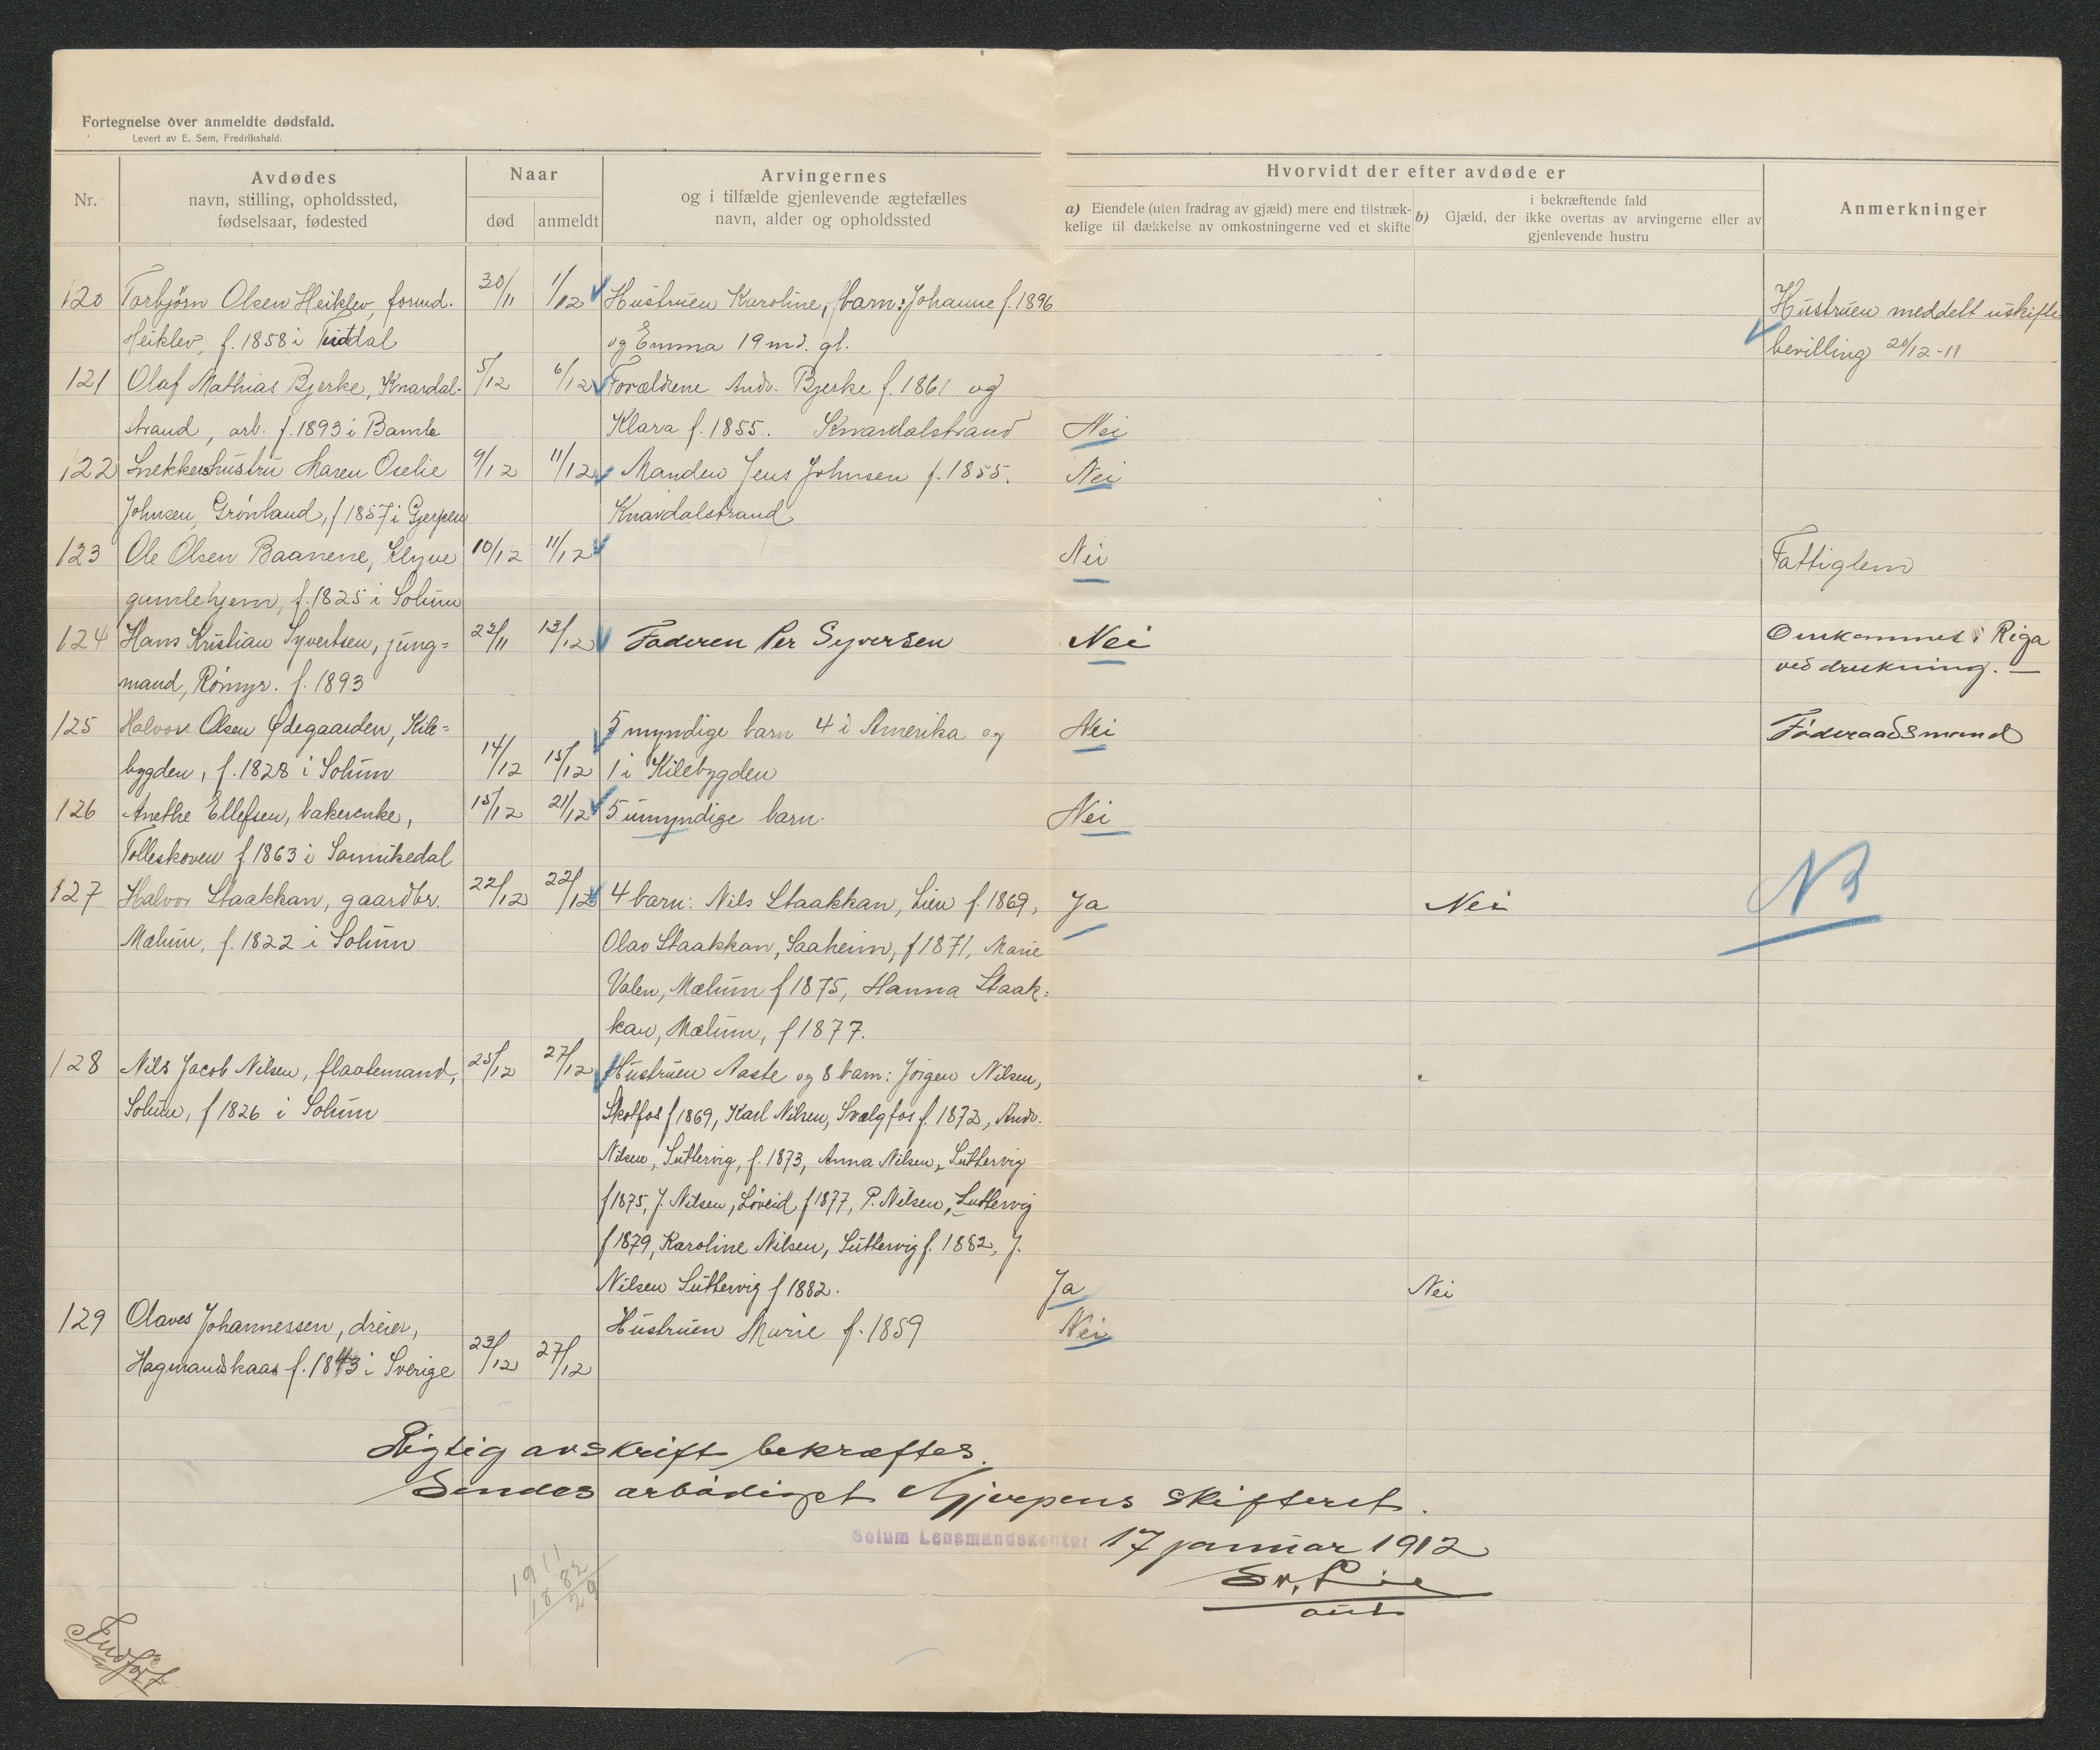 Fortegnelse over anmeldte dødsfald.
Levert av E. Sem, Fredrikshald.
Nr.
Avdødes
navn, stilling, opholdssted,
fødselsaar, fødested
Naar
død
anmeldt
Arvingernes
og i tilfælde gjenlevende ægtefælles
navn, alder og opholdssted
Hvorvidt der efter avdøde er
a) Eiendele (uten fradrag av gjæld) mere end tilstræk-
kelige til dækkelse av omkostningerne ved et skifte
i bekræftende fald
b) Gjæld, der ikke overtas av arvingerne eller av
gjenlevende hustru
Anmerkninger
120 Torbjörn Olsen Heiklev, forund. 30/11 1/12 Hustruen Karoline, barn: Johanne f. 1896 Hustruen meddelt uskifte
Heiklev, f. 1858 i Tuddal og Emma 19 md. gl. bevilling 20/12-11
121 Olaf Mathias Bjerke, Knardal- 5/12 6/12 Forældrene Andr. Bjerke f. 1861 og
strand, arb. f. 1893 i Bamle Klara f. 1855. Knardalstrand Nei
122 Snekkershustru Maren Oselie 9/12 11/12 Manden Jens Johnsen f. 1855. Nei
Johnsen, Grönland, f 1857 i Gjerpen Knardalstrand
123 Ole Olsen Baanene, Klyve 10/12 11/12 Nei Fattiglem
gamlehjem, f. 1825 i Solum
124 Hans Kristian Syvertsen, jung= 23/11 13/12 Faderen Per Syversen Nei Omkommet i Riga
mand, Römyr. f. 1893 ved drukning. —
125 Halvor Olsen Ødegaarden, Kile= 5 myndige barn 4 i Amerika og Nei Föderaadsmand
bygden, f. 1828 i Solum 14/12 15/12 1 i Kilebygden
126 Anethe Ellefsen, bakerenke, 15/12 21/12 5 umyndige barn. Nei
Tolleskoven f. 1863 i Sannikedal
127 Halvor Staakkan, gaardbr. 22/12 22/12 4 barn: Nils Staakkan, Lien f. 1869, Ja Nei NB
Mælum, f. 1822 i Solum Olav Staakkan, Saaheim, f 1871, Marie
Valen, Mælum f 1875, Hanna Staak=
kan, Mælum, f 1877.
128 Nils Jacob Nilsen, flaatemand, 25/12 27/12 Hustruen Aaste og 8 barn: Jörgen Nilsen,
Solum, f 1826 i Solum Skotfos f 1869, Karl Nilsen, Svælgfos f. 1872, Andr.
Nilsen, Suttervig, f. 1873, Anna Nilsen, Suttervig
f 1875, J. Nilsen, Löveid f 1877, P. Nilsen, Suttervig
f 1879, Karoline Nilsen, Suttervig f. 1882, J.
Nilsen Suttervig f 1882. Ja Nei
129 Olaves Johannessen, dreier, Hustruen Marie f. 1859 Nei
Hagmandskaas f. 1843 i Sverige 23/12 27/12
Rigtig avskrift bekræftes.
Sendes ærbödigst Gjerpens skifteret.
Solum Lensmandskontor 17 januar 1912
Sv. Lie
1911
1882
29
Indfört